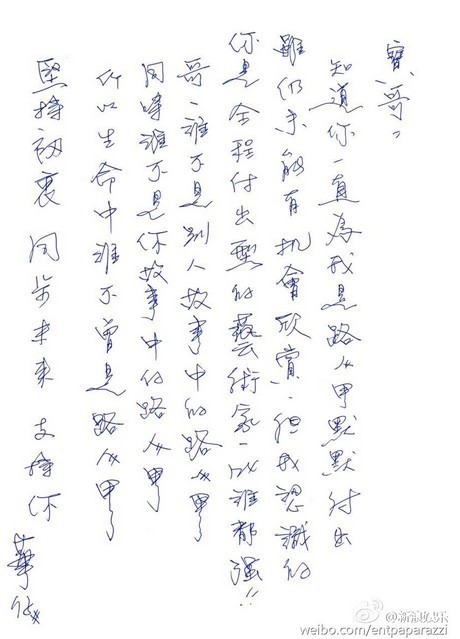 寶哥〃
知道你一直為我是路人甲默默付出
雖仍未能有机會欣賞、但我認識的
你是全程付出型的藝術家、比誰都強!!
哥、誰不是別人故事中的路人甲
同時誰不是你故事中的路人甲
所以生命中誰不曾是路人甲
堅持初衷 同步未來 支持你
華仔
@新浪娱乐
weibo.com/entpaparazzi